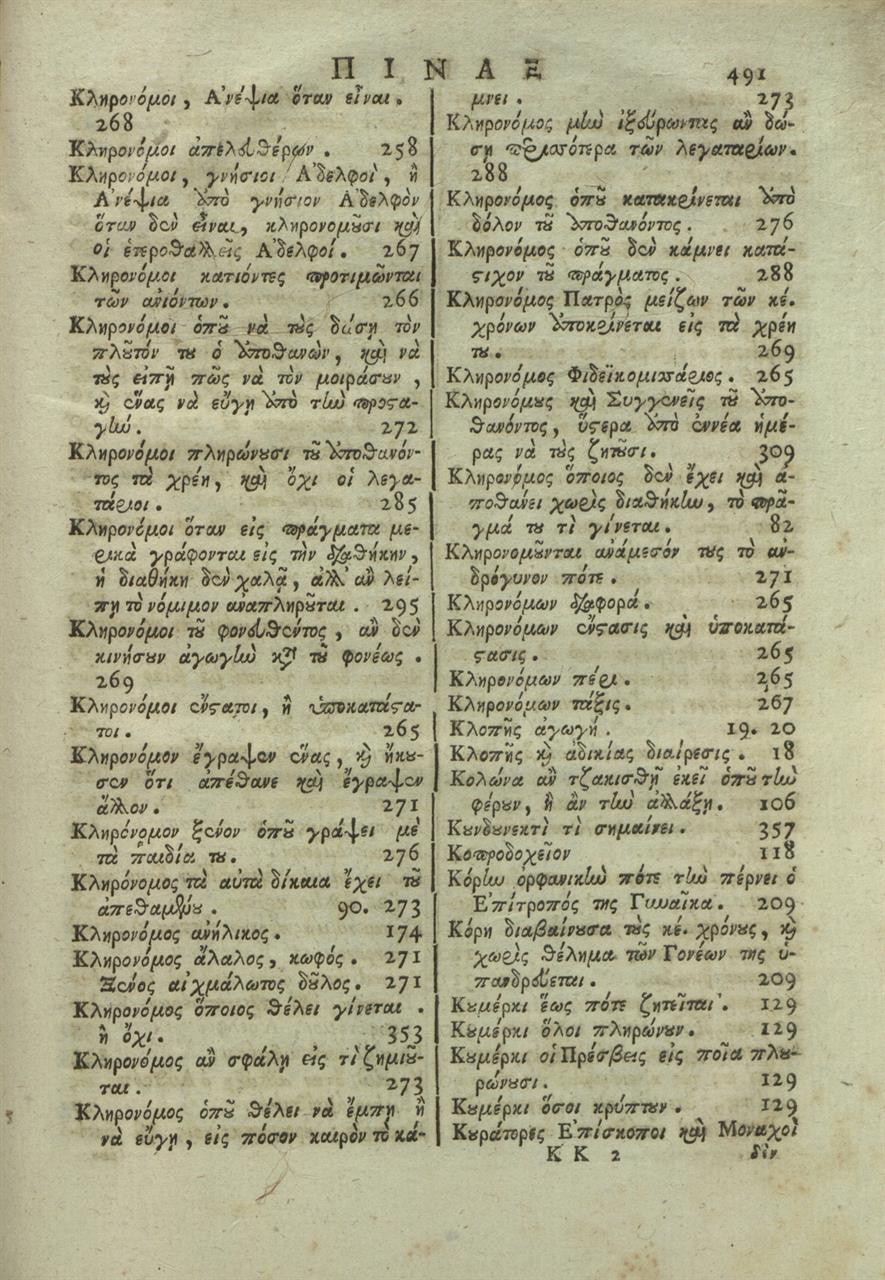 ΠΙΝΑΞ 491
Κληρονόμοι, Ἀνέψια ὅταν εἶναι.
268
Κληρονόμοι ἀπελευθέρων. 258
Κληρονόμοι, γνήσιοι Ἀδελφοὶ, ἢ
Ἀνέψια ἀπὸ γνήσιον Ἀδελφὸν
ὅταν δὲν εἶναι, κληρονομοῦσι καὶ
οἱ ἑτεροθαλλεῖς Ἀδελφοί. 267
Κληρονόμοι κατιόντες προτιμῶνται
τῶν ἀνιόντων. 266
Κληρονόμοι ὁποῦ νὰ τοὺς δώσῃ τὸν
πλοῦτόν του ὁ ἀποθανὼν, καὶ νὰ
τοὺς εἰπῇ πῶς νὰ τὸν μοιράσουν,
καὶ ἕνας νὰ εὔγῃ ἀπὸ τὴν προςα-
γήν. 272
Κληρονόμοι πληρώνουσι τοῦ ἀποθανόν-
τος τὰ χρέη, καὶ ὄχι οἱ λεγα-
τάριοι. 285
Κληρονόμοι ὅταν εἰς πράγματα με-
ρικὰ γράφονται εἰς τὴν διαθήκην,
ἡ διαθήκη δὲν χαλᾷ, ἀλλ' ἂν λεί-
πῃ τὸ νόμιμον ἀναπληροῦται. 295
Κληρονόμοι τοῦ φονευθέντος, ἂν δὲν
κινήσουν ἀγωγὴν κατὰ τοῦ φονέως.
269
Κληρονόμοι ἔνςατοι, ἢ ὑποκατάςα-
τοι. 265
Κληρονόμον ἔγραψεν ἕνας, καὶ ἤκου-
σεν ὅτι ἀπέθανε καὶ ἔγραψεν
ἄλλον. 271
Κληρόνομον ξένον ὁποῦ γράψει μὲ
τὰ παιδία του. 276
Κληρόνομος τὰ αὐτὰ δίκαια ἔχει τοῦ
ἀπεθαμένου. 90. 273
Κληρονόμος ἀνήλικος. 174
Κληρονόμος ἄλαλος, κωφός. 271
Ξένος αἰχμάλωτος δοῦλος. 271
Κληρονόμος ὅποιος θέλει γίνεται.
ἢ ὄχι. 353
Κληρονόμος ἂν σφάλῃ εἰς τὶ ζημιοῦ-
ται. 273
Κληρονόμος ὁποῦ θέλει νὰ ἔμπῃ ἢ
νὰ εὔγῃ, εἰς πόσον καιρὸν τὸ κά-
μνει. 273
Κληρονόμος μὲ ἰξεύρωντας ἂν δώ-
σῃ περισσότερα τῶν λεγαταρίων.
288
Κληρονόμος ὁποῦ κατακρίνεται ἀπὸ
δόλον τοῦ ἀποθανόντος. 276
Κληρονόμος ὁποῦ δὲν κάμνει κατά-
ςιχον τοῦ πράγματος. 288
Κληρονόμος Πατρὸς μείζων τῶν κέ.
χρόνων ἀποκρίνεται εἰς τὰ χρέη
του. 269
Κληρονόμος Φιδεϊκομισσάριος. 265
Κληρονόμους καὶ Συγγενεῖς τοῦ ἀπο-
θανόντος, ὕςερα ἀπὸ ἐννέα ἡμέ-
ρας νὰ τοὺς ζητοῦσι. 309
Κληρονόμος ὅποιος δὲν ἔχει καὶ ἀ-
ποθάνει χωρὶς διαθήκην, τὸ πρᾶ-
γμά του τὶ γίνεται. 82
Κληρονομοῦνται ἀνάμεσόν τους τὸ ἀν-
δρόγυνον πότε. 271
Κληρονόμων διαφορά. 265
Κληρονόμων ἔνςασις καὶ ὑποκατά-
ςασις. 265
Κληρονόμων πέρι. 265
Κληρονόμων τάξις. 267
Κλοπῆς ἀγωγή. 19. 20
Κλοπῆς καὶ ἀδικίας διαίρεσις. 18
Κολώνα ἂν τζακισθῇ ἐκεῖ ὁποῦ τὴν
φέρουν, ἢ ἂν τὴν ἀλλάξῃ. 106
Κουνδουνεκτὶ τὶ σημαίνει. 357
Κοπροδοχεῖον 118
Κόρην ὀρφανικὴν πότε τὴν πέρνει ὁ
Ἐπίτροπός της Γυναῖκα. 209
Κόρη διαβαίνουσα τοὺς κέ. χρόνους, καὶ
χωρὶς θέλημα τῶν Γονέων της ὑ-
πανδρεύεται. 209
Κουμέρκι ἕως πότε ζητεῖται. 129
Κουμέρκι ὅλοι πληρώνουν. 129
Κουμέρκι οἱ Πρέσβεις εἰς ποῖα πλη-
ρώνουσι. 129
Κουμέρκι ὅσοι κρύπτουν. 129
Κουράτορες Ἐπίσκοποι καὶ Μοναχοὶ
ΚΚ 2 δὲν